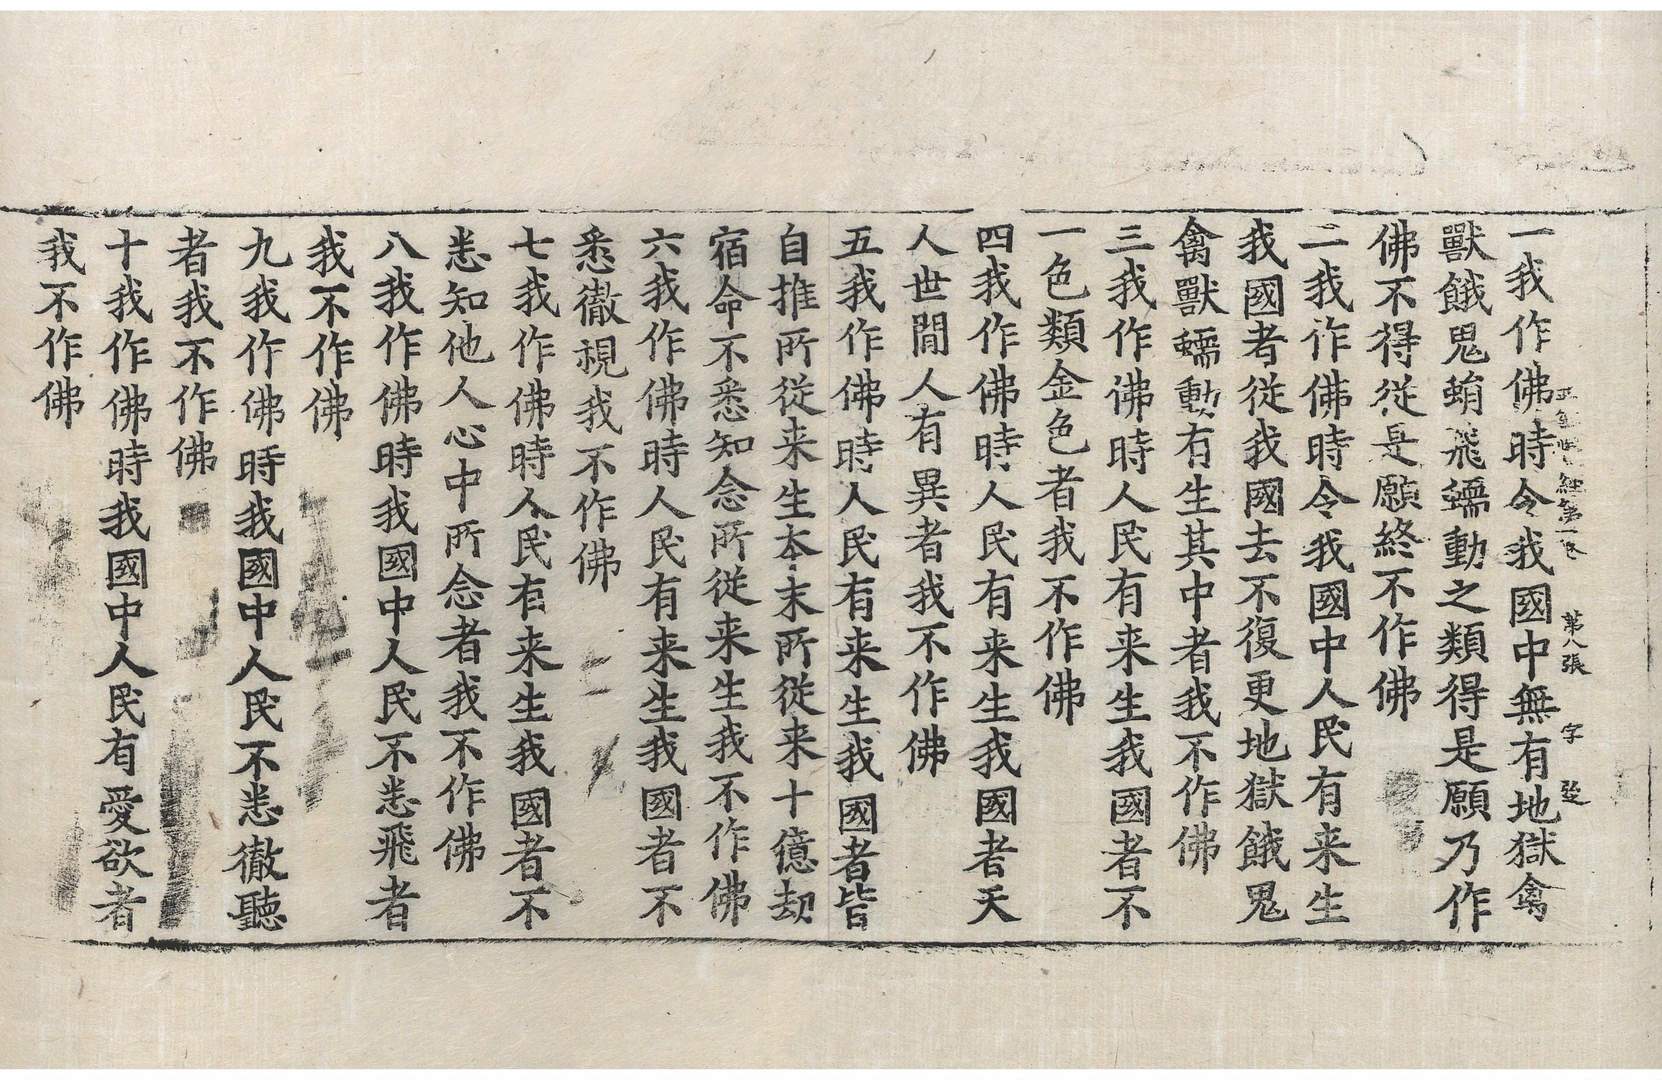 一我作佛時令我國中無有地獄禽
獸餓鬼蜎飛蠕動之類得是願乃作
佛不得從是願終不作佛
二我作佛時令我國中人民有来生
我國者從我國去不復更地獄餓鬼
禽獸蠕動有生其中者我不作佛
三我作佛時人民有来生我國者不
一色類金色者我不作佛
四我作佛時人民有来生我國者天
人世間人有異者我不作佛
五我作佛時人民有来生我國者皆
自推所從来生本末所從来十億劫
宿命不悉知念所從来生我不作佛
六我作佛時人民有来生我國者不
悉徹視我不作佛
七我作佛時人民有来生我國者不
悉知他人心中所念者我不作佛
八我作佛時我國中人民不悉飛者
我不作佛
九我作佛時我國中人民不悉徹聽
者我不作佛
十我作佛時我國中人民有愛欲者
我不作佛
經第一卷 第八張 字